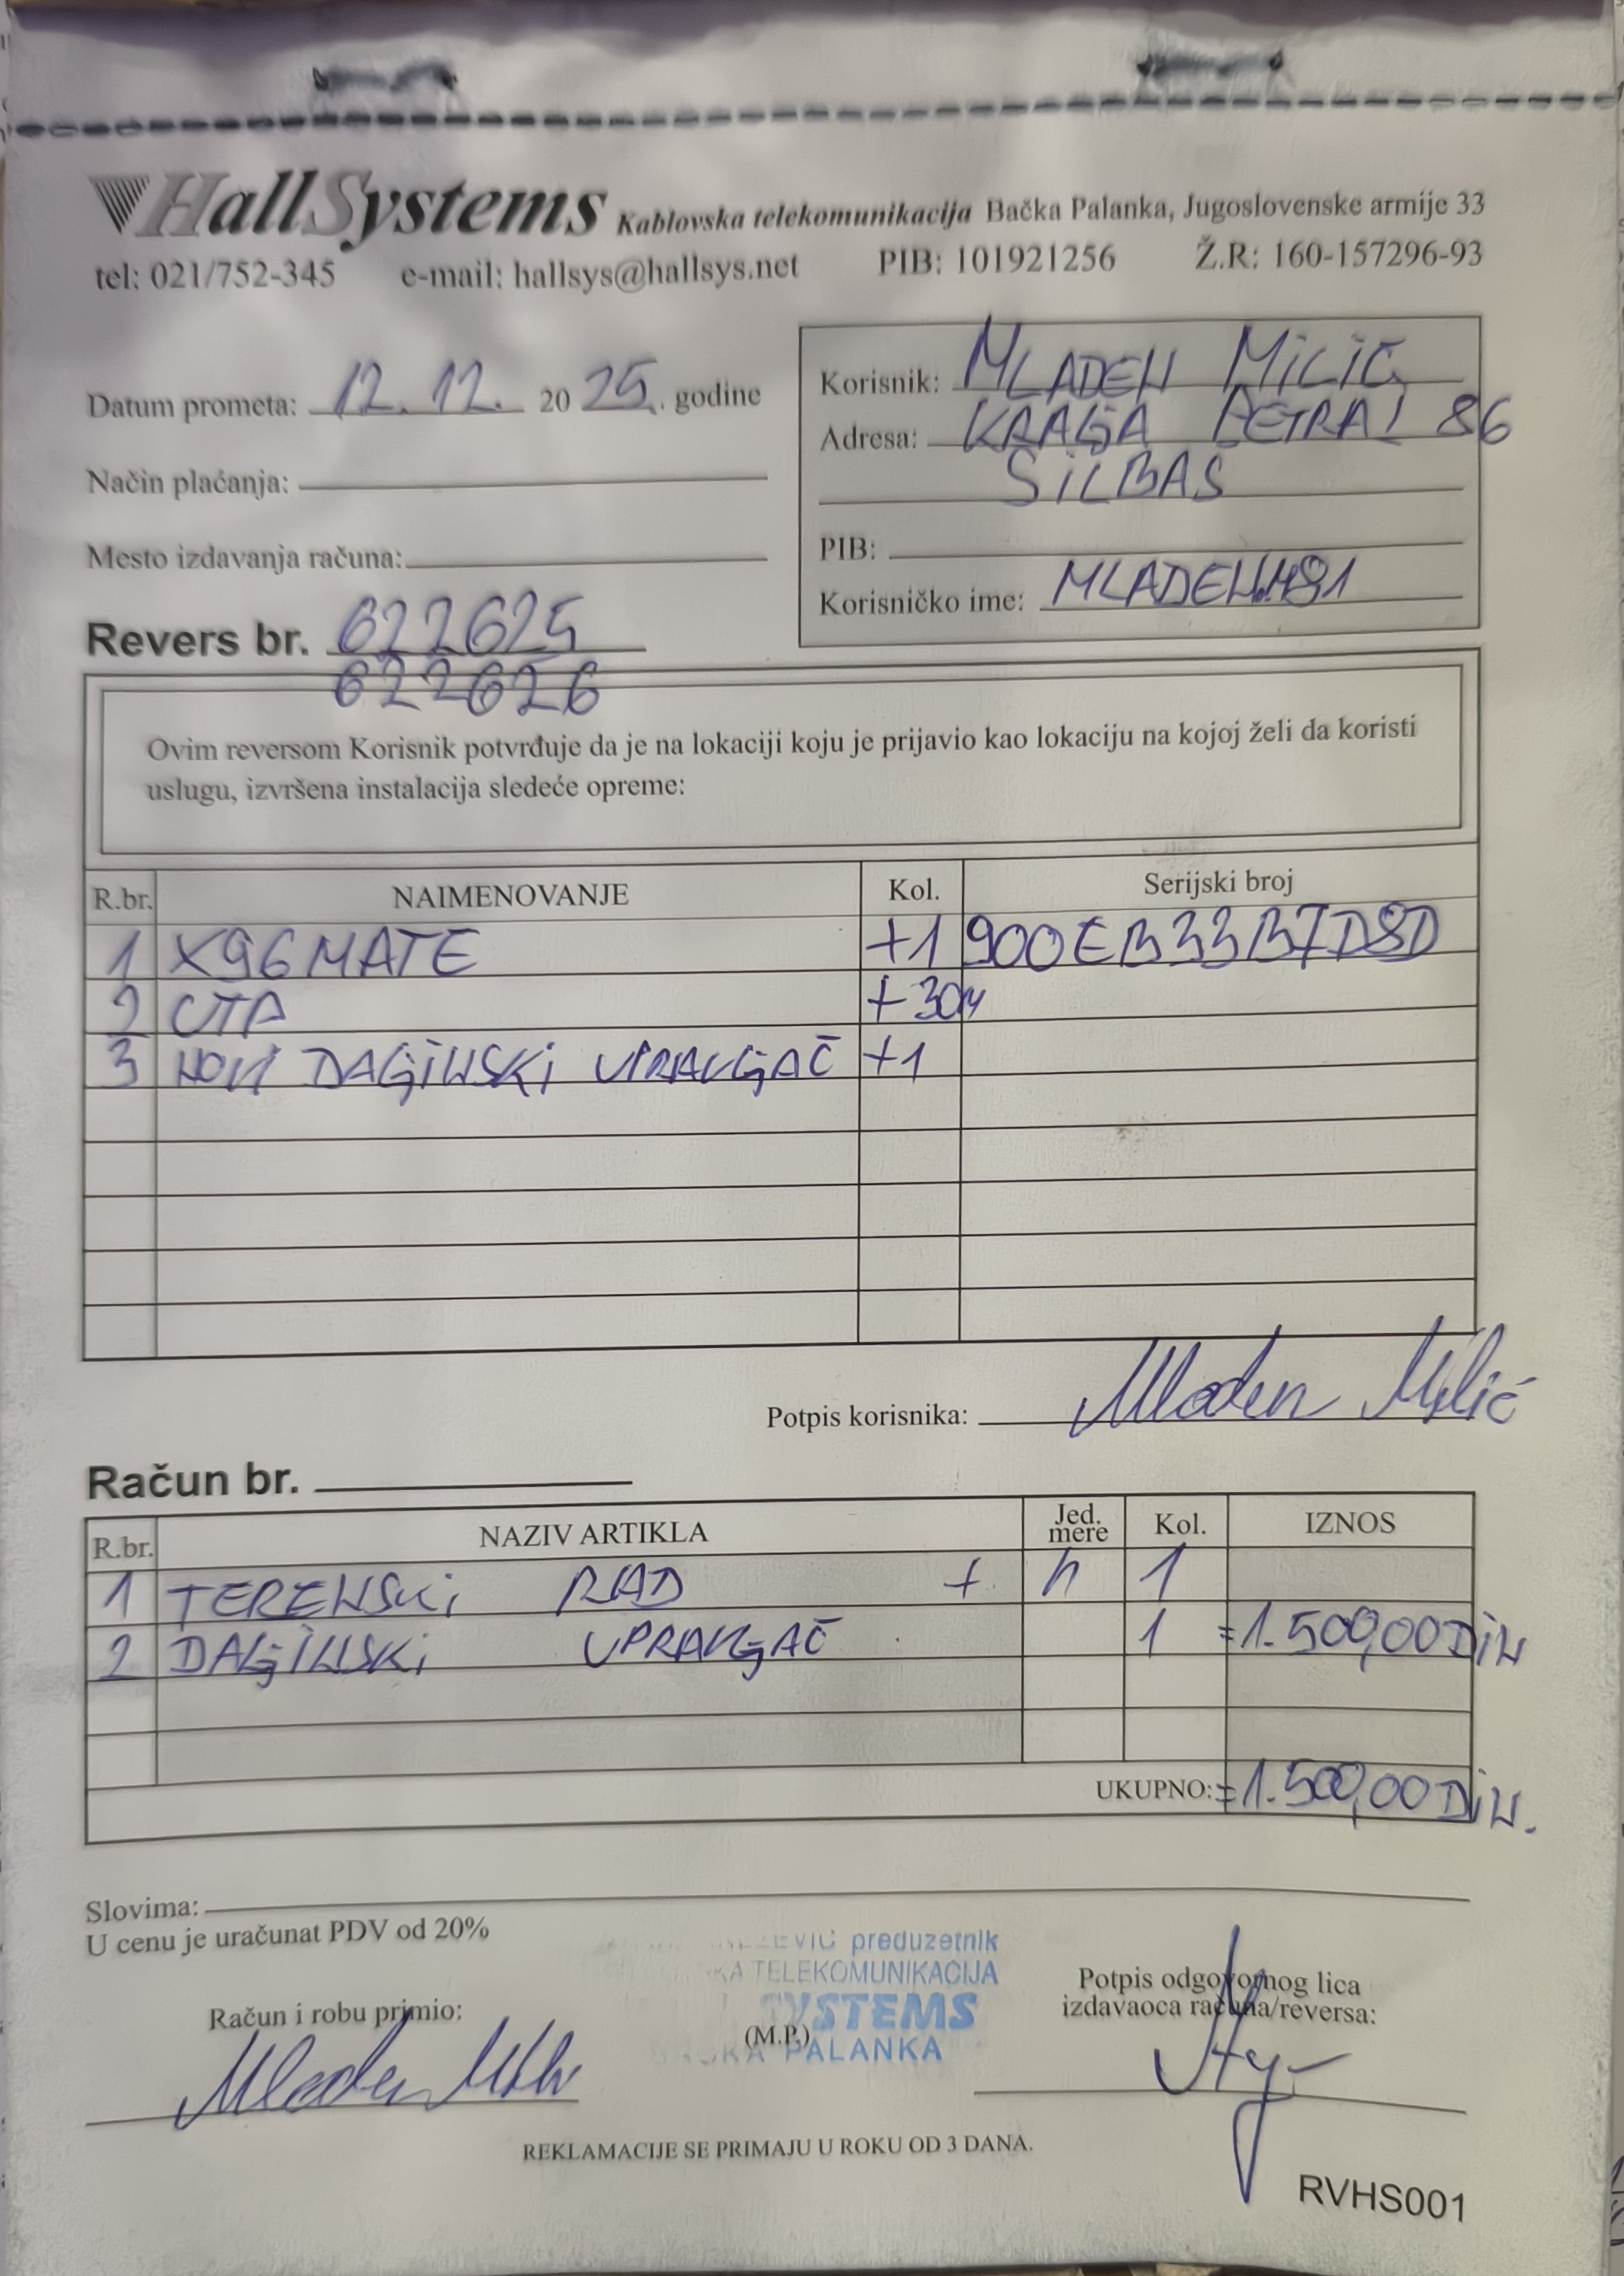 HallSystems Kablovska telekomunikacija Bačka Palanka, Jugoslovenske armije 33
tel: 021/752-345 e-mail: hallsys@hallsys.net PIB: 101921256 Ž.R: 160-157296-93
Datum prometa: 12. 12. 2025. godine
Način plaćanja:
Mesto izdavanja računa:
Korisnik: MLADEN MiLiĆ
Adresa: KRALJA PETRA I 86
SiLBAŠ
PIB:
Korisničko ime: MLADEN.M81
Revers br. 622625
622626
Ovim reversom Korisnik potvrđuje da je na lokaciji koju je prijavio kao lokaciju na kojoj želi da koristi
uslugu, izvršena instalacija sledeće opreme:
R.br. NAIMENOVANJE Kol. Serijski broj
1 X96MATE +1 900EB33B7D8D
2 UTP +30M
3 NOVi DALjiNSKi UPRAVLjAČ +1
Potpis korisnika: Mladen Milić
Račun br.
R.br. NAZIV ARTIKLA Jed. mere Kol. IZNOS
1 TERENSKi RAD + h 1
2 DALjiNSKi UPRAVLjAČ 1 =1.500,00DiN
UKUPNO: =1.500,00DiN.
Slovima:
U cenu je uračunat PDV od 20%
preduzetnik
TELEKOMUNIKACIJA
SYSTEMS
(M.P.)
PALANKA
Račun i robu primio:
Mladen Milić
Potpis odgovornog lica
izdavaoca računa/reversa:
REKLAMACIJE SE PRIMAJU U ROKU OD 3 DANA.
RVHS001